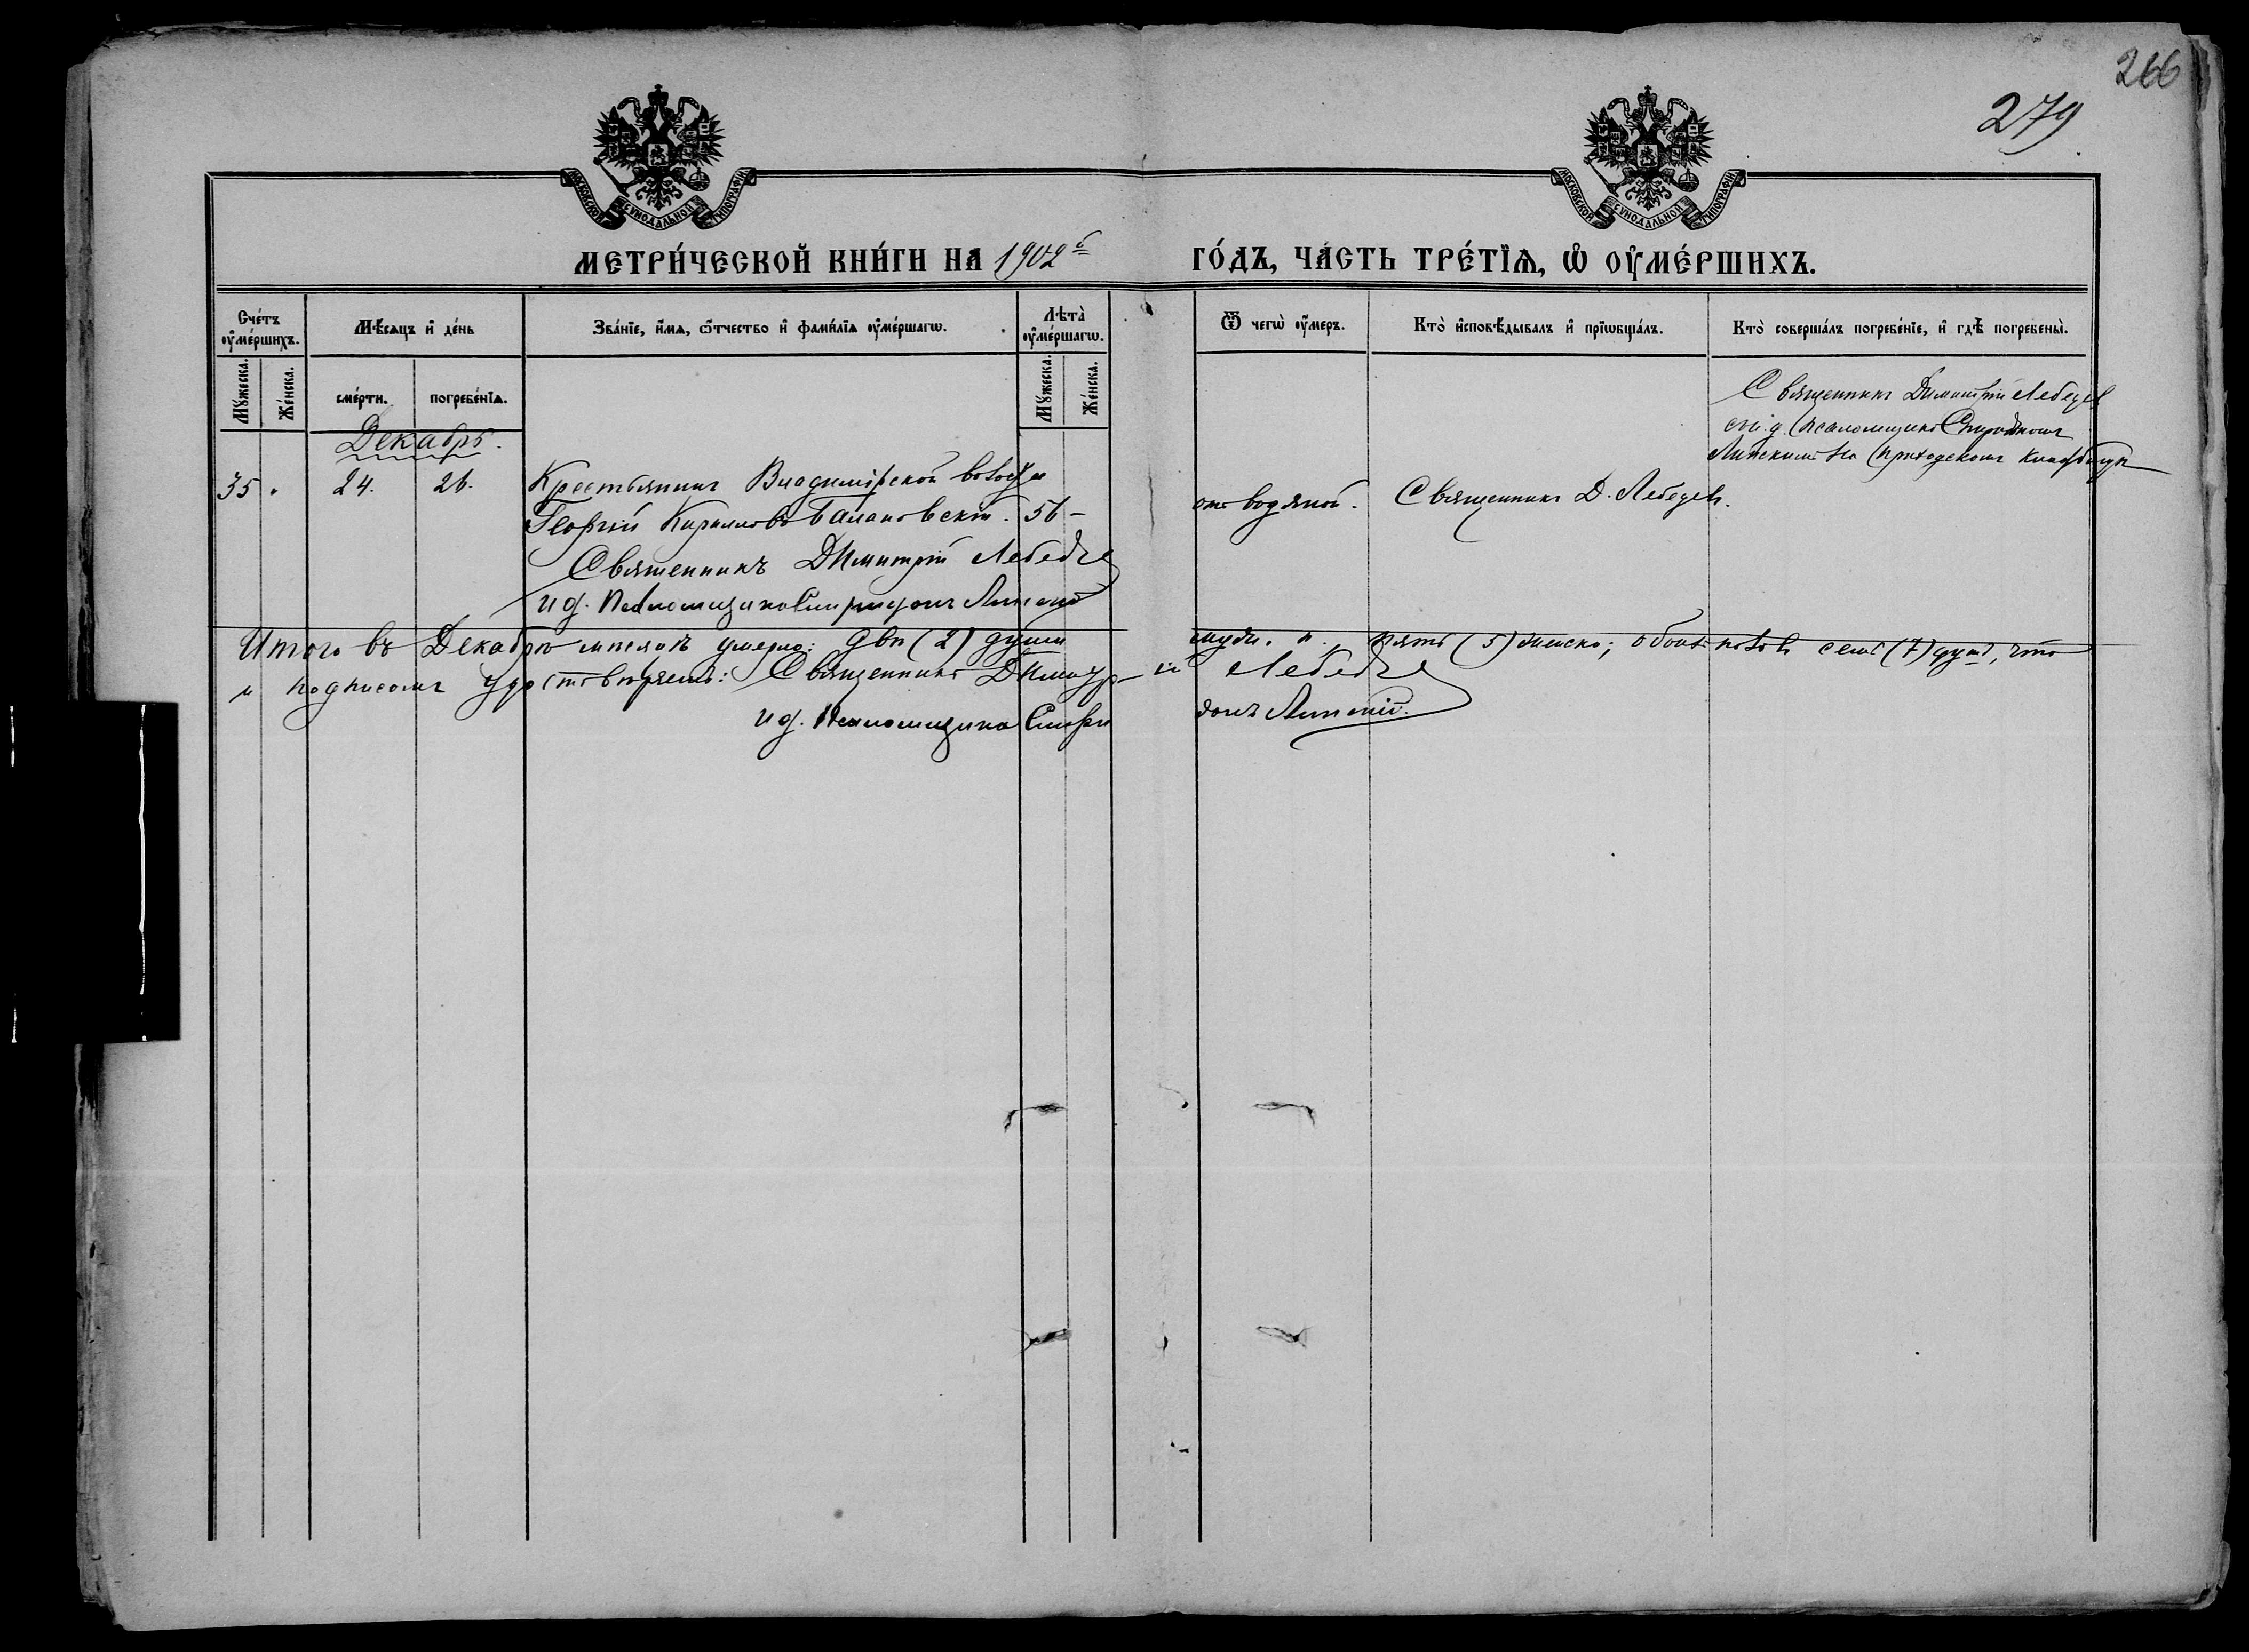 266
279
МОСКОВСКОЙ СѴНОДАЛЬНОЙ ТИПОГРАФІИ
МОСКОВСКОЙ СѴНОДАЛЬНОЙ ТИПОГРАФІИ
МЕТРИ́ЧЕСКОЙ КНИ́ГИ НА 1902 ГО́ДЪ, ЧА́СТЬ ТРЕ́ТЇѦ, Ѡ ОУМЕ́РШИХЪ.
Счетъ оумершихъ.
Мѣсяцъ и день
Званіе, имя, ѿчество и фамилїа оумершагѡ.
Лѣта оумершагѡ.
Ѿ чегѡ оумеръ.
Кто исповѣдывалъ и прїѡбщалъ.
Кто совершалъ погребенїе, и гдѣ погребены.
Мужеска.
Женска.
смерти.
погребенїа.
Мужеска.
Женска.
Декабрь.
Священникъ Димитрій Лебедев
съ и.д. псаломщика Спиридоном
Липским на приходском кладбищѣ
35 24. 26. Крестьянинъ Владимірской волости
Георгій Кириллов 56 - от водяной. Священникъ Д. Лебедевъ.
Священникъ Димитрій Лебедев
ид. Псаломщика Спиридонъ Липскій
Итого въ Декабрѣ мѣсяцѣ умерло: двѣ (2) души муж. п. пять (5) женска; обоих половъ семь (7) душъ, что
и подписомъ удостовѣряемъ: Священникъ Димитрій Лебедев
ид. Псаломщика Спиридонъ Липскій.